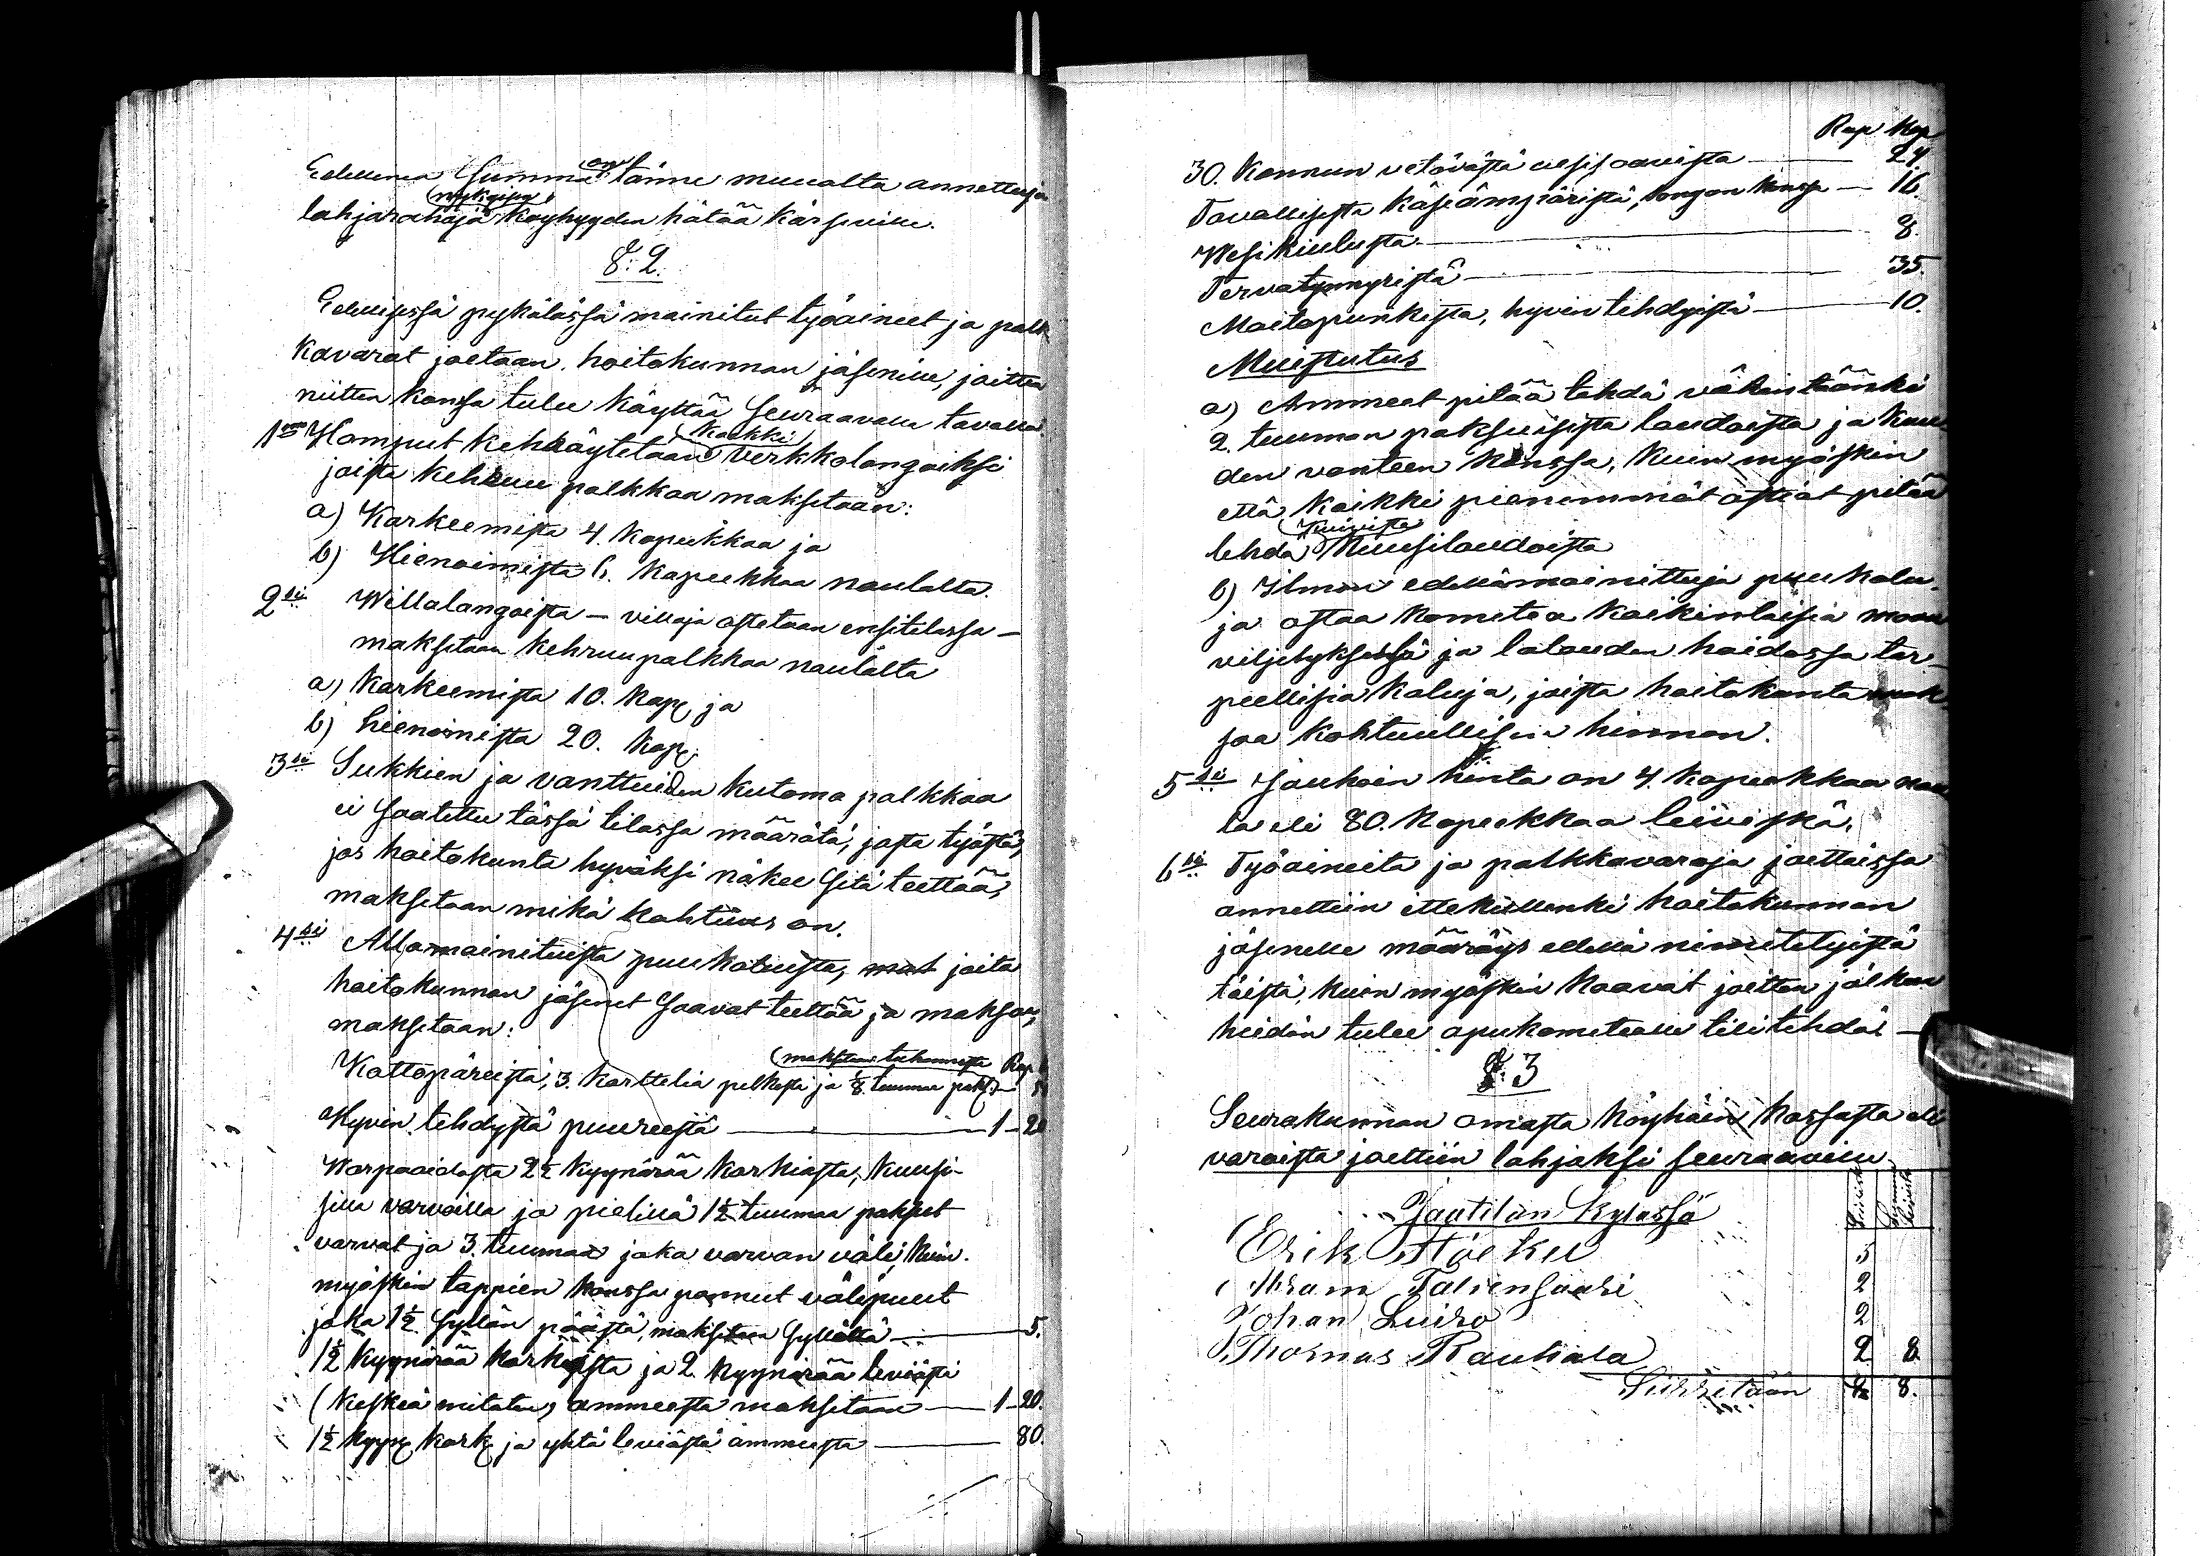 Edellinen Summa on tänne muualta annettuja
lahjarahoja nykyisen köyhyyden hätää kärsiville.
§: 2.
Edellisessä pykälässä mainitut työaineet ja palk
kavarat jaetaan hoitokunnan jäsenille, joitten
niitten kanssa tulee käyttää seuraavalla tavalla.
1o Hamput kehräytetään kaikki verkkolangaiksi
joista kehruu palkkaa maksetaan:
a) Karkeemista 4. kopeekkaa ja
b) Hienoimista 6. kopeekkaa naulalta.
2si Willalangoista – villoja ostetaan ensitilassa –
maksetaan kehruupalkkaa naulalta
a) Karkeemista 10. Kop. ja
b) hienoimista 20. Kop.
3si Sukkien ja vanttuiden kutoma palkkaa
ei saatettu tässä tilassa määrätä, josta työstä,
jos hoitokunta hyväksi näkee sitä teettää,
maksetaan mikä kohtuus on.
4si Allamainituista puukaluista, joita
hoitokunnan jäsenet saavat teettää ja maksaa,
maksetaan:
Kattopäreistä, 3. korttelia pitkistä ja 1/8 tuuman paks. maksetaan tuhannesta Rup.
Hyvin tehdystä puureestä — 1–20
Warpaaidasta 2½ kyynärää korkiasta, kuusi-
silla varvoilla ja pielillä 1½ tuumaa paksut
varvat ja 3. tuumaa joka varvan väli, kuin
myöskin tappien kanssa pannut välipuut
joka 1½ Syllän päästä, maksetaan Syllältä — 5.
1½ Kyynärää korkiasta ja 2. Kyynärää leviästi
(Keskeä mitaten) ammeesta maksetaan — 1–20.
1½ Kyyn. kork. ja yhtä leviästä ammeesta — 80.
Rup Kop
30. Kannun vetävästä vesisaavista — 24.
Tavallisesta käsiämpäristä, kongan kanssa — 16.
Wesikiulusta — 8.
Tervatynnyristä — 35.
Maitopunkista, hyvin tehdyistä — 10.
Muistutus
a) Ammeet pitää tehdä vähintäänki
2. tuuman paksuisista laudoista ja kuu
den vanteen kanssa, kuin myöskin
että kaikki pienemmät astiat pitää
tehdä kuivista kuusilaudoista
b) Ilman edellämainittuja puukalu-
ja ostaa Komitea kaikinlaisia maan
viljelyksessä ja talouden hoidossa tar-
peellisia kaluja, joista hoitokunta mak
saa kohtuullisen hinnan.
5si Jauhoin hinta on 4. kopeekkaa nau
la eli 80. kopeekkaa leiviskä.
6si Työaineita ja palkkavaroja jaettaissa
annettiin ittekullenki hoitokunnan
jäsenelle määräys edellä nimitetyistä
töistä, kuin myöskin kaavat joitten jälkeen
heidän tulee apukomitealle tili tehdä –
§: 3
Seurakunnan omasta köyhäin kassasta eli
varoista jaettiin lahjaksi seuraaville
Jaatilan Kylässä
Erik 5
Abram Taliensaari 2
Johan Luiro 2
Thomas Rautiala 2 8
Siirretään 8.